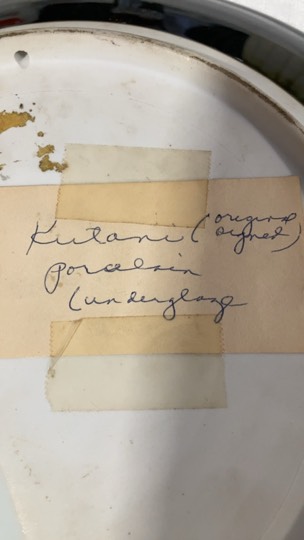 Kutani (original signed)
porcelain
(underglaze